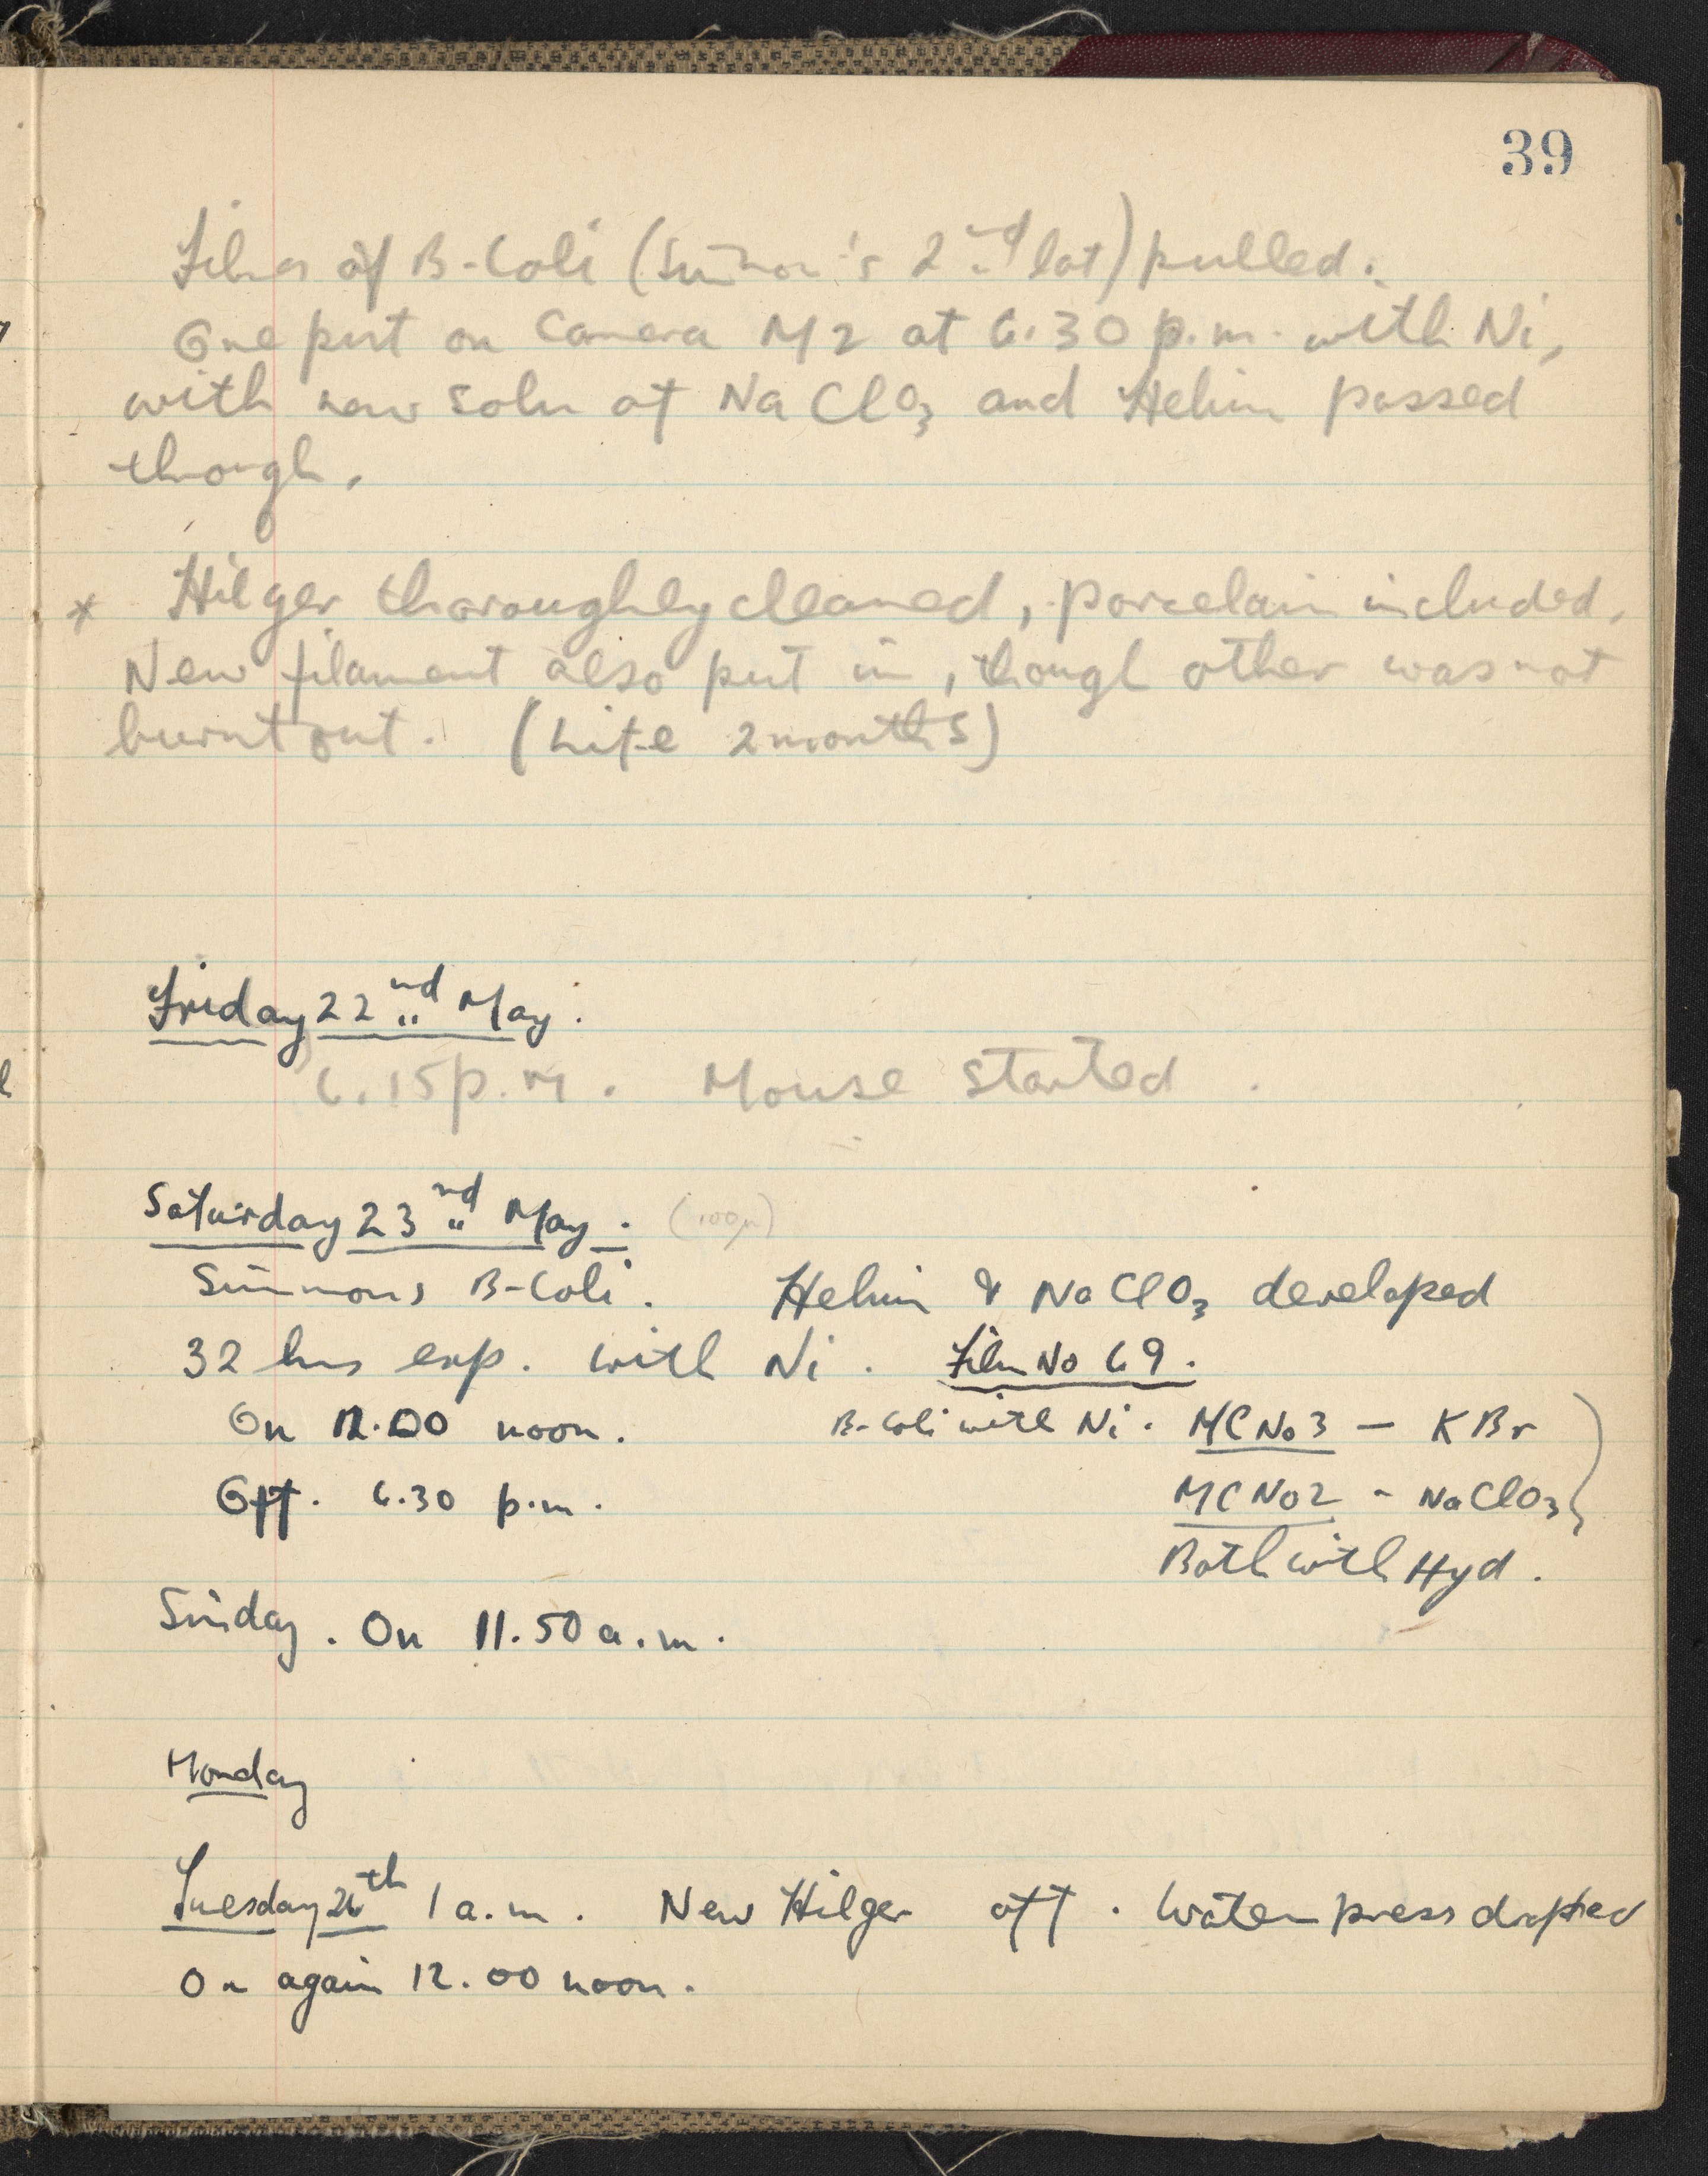 39
Fibres of B-Coli (Simmon's 2nd lot) pulled.
One put on Camera M2 at 6.30 p.m. with Ni,
with new soln of NaClO3 and Helium passed
through.
* Hilger thoroughly cleaned, porcelain included.
New filament also put in, though other was not
burnt out. (Life 2 months)
Friday 22nd May.
6.15 p.m. Mouse started.
Saturday 23rd May. (100μ)
Simmons B-Coli. Helium & NaClO3 developed
32 hrs exp. with Ni. Film No 69.
On 12.00 noon. B-Coli with Ni. MC No 3 — KBr
Off. 6.30 p.m. MC No 2 - NaClO3
Both with Hyd.
Sunday. On 11.50 a.m.
Monday
Tuesday 26th 1 a.m. New Hilger off. Water press dropped
On again 12.00 noon.